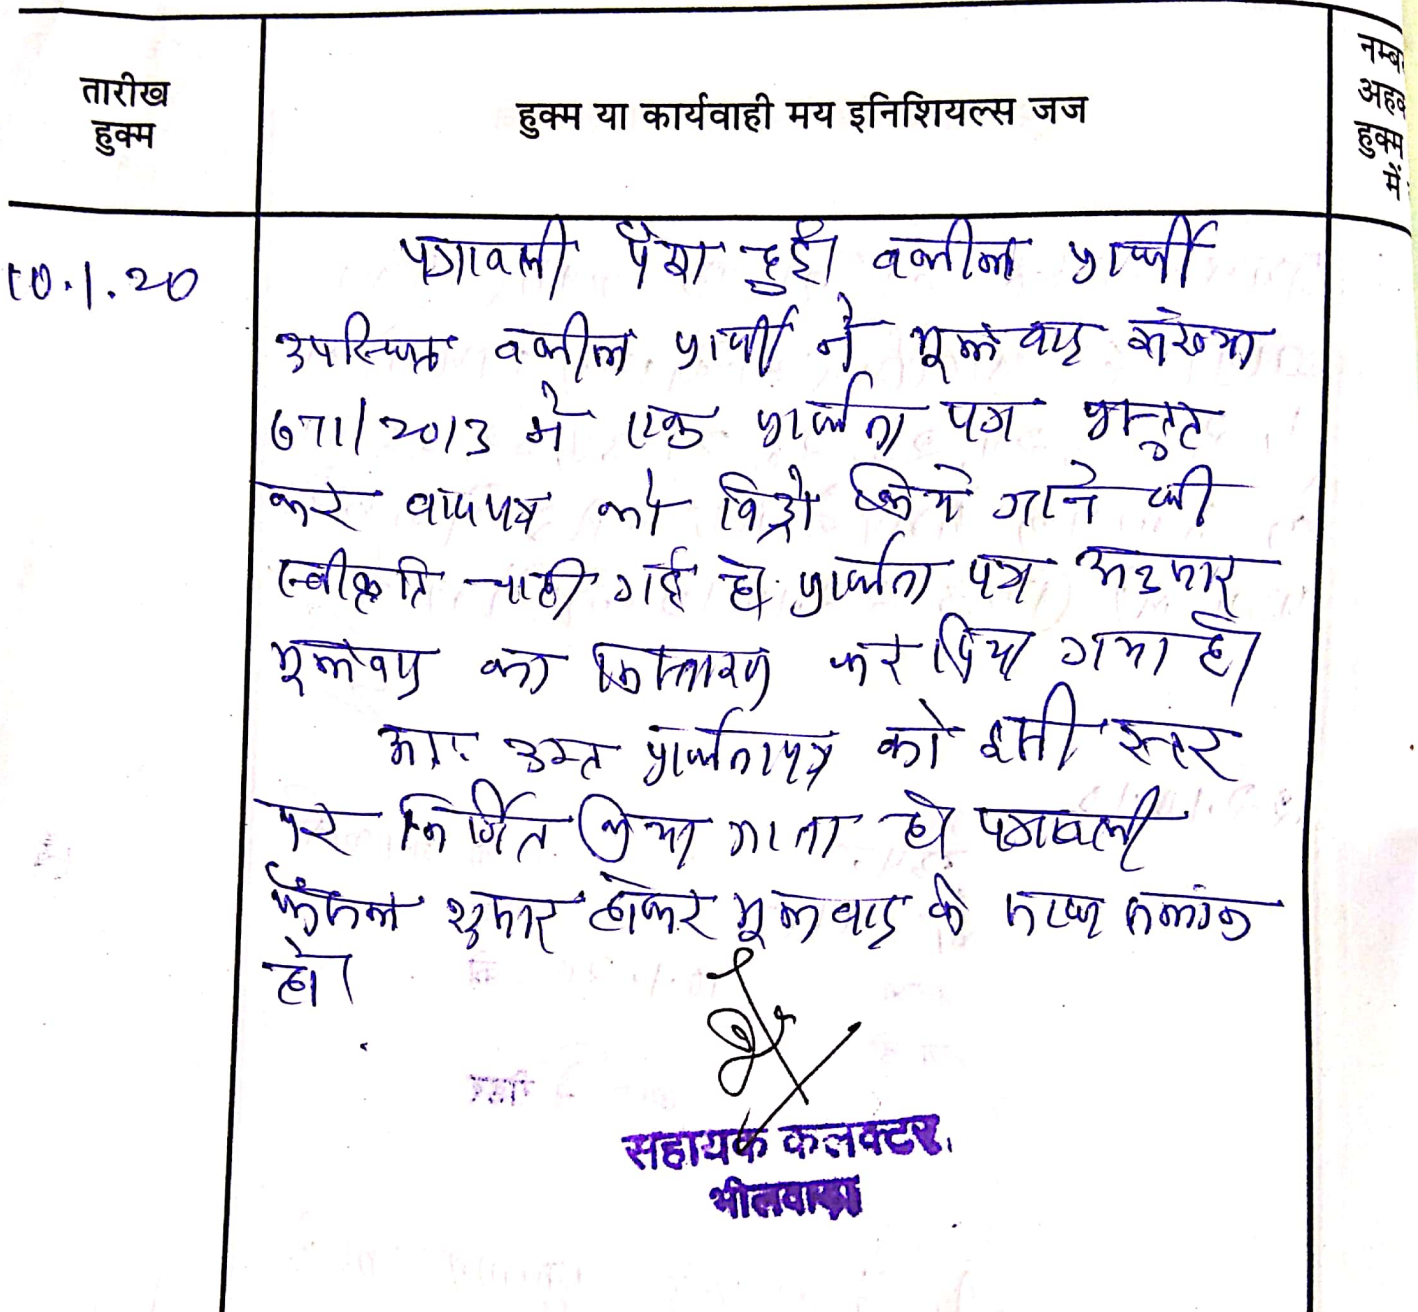 तारीख
हुक्म
हुक्म या कार्यवाही मय इनिशियल्स जज
नम्ब
अहव
हुक्म
में
10.1.20
पत्रावली पेश हुई। वकील प्रार्थी
उपस्थित वकील प्रार्थी ने मूल वाद संख्या
671/2013 में एक प्रार्थना पत्र प्रस्तुत
कर वादपत्र को विड्रो किये जाने की
स्वीकृति चाही गई है। प्रार्थना पत्र अनुसार
मूलवाद का निस्तारण कर दिया गया है।
अतः उक्त प्रार्थनापत्र को इसी स्तर
पर निर्णित किया जाता है। पत्रावली
फैसल शुमार होकर मूलवाद के साथ संलग्न
हो।
सहायक कलक्टर,
भीलवाड़ा